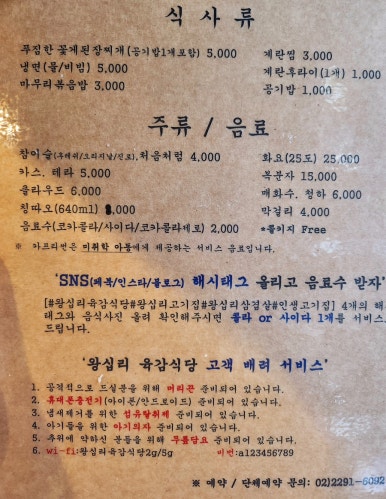 식 사 류
푸짐한 꽃게된장찌개(공기밥1개포함) 5,000
계란찜 3,000
냉면(물/비빔) 5,000
계란후라이(1개) 1,000
마무리볶음밥 3,000
공기밥 1,000
주류 / 음료
참이슬(후레쉬/오리지날/진로),처음처럼 4,000
화요(25도) 25,000
카스, 테라 5,000
복분자 15,000
클라우드 6,000
매화수, 청하 6,000
칭따오(640ml) 8,000
막걸리 4,000
음료수(코카콜라/사이다/코카콜라제로) 2,000
*콜키지 Free
※ 카프리썬은 미취학 아동에게 제공하는 서비스 음료입니다.
'SNS(페북/인스타/블로그) 해시태그 올리고 음료수 받자'
[#왕십리육감식당#왕십리고기집#왕십리삼겹살#인생고기집] 4개의 해
태그와 음식사진 올려 확인해주시면 콜라 or 사이다 1개를 서비스
드립니다.
'왕십리 육감식당 고객 배려 서비스'
1. 공격적으로 드실분을 위해 머리끈 준비되어 있습니다.
2. 휴대폰충전기(아이폰/안드로이드) 준비되어 있습니다.
3. 냄새제거를 위한 섬유탈취제 준비되어 있습니다.
4. 아기들을 위한 아기의자 준비되어 있습니다.
5. 추위에 약하신 분들을 위해 무릎담요 준비되어 있습니다.
6. wi-fi:왕십리육감식당2g/5g 비번:a123456789
※ 예약 / 단체예약 문의: 02)2291-6092